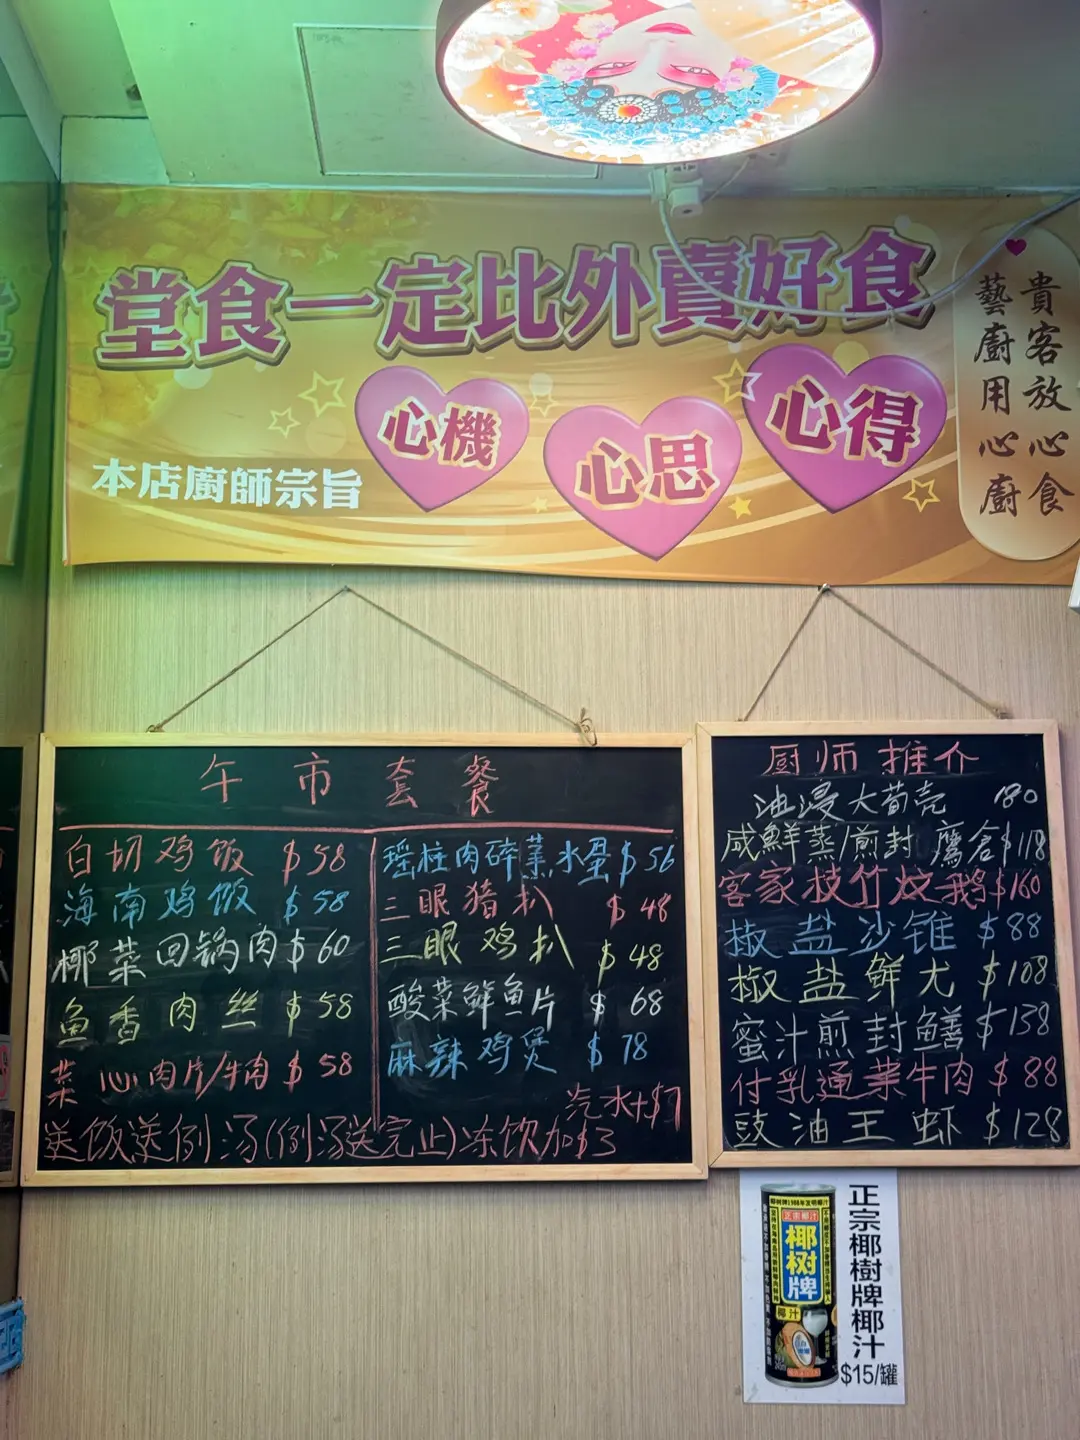 堂食一定比外賣好食
心機
心思
心得
本店廚師宗旨
貴客放心食
藝廚用心廚
午市套餐
白切鸡饭 $58
海南鸡饭 $58
椰菜回锅肉 $60
鱼香肉丝 $58
菜心肉片/牛肉 $58
瑶柱肉碎蒸水蛋 $56
三眼猪扒 $48
三眼鸡扒 $48
酸菜鲜鱼片 $68
麻辣鸡煲 $78
汽水+$7
送饭送例汤(例汤送完止)冻饮加$3
厨师推介
油浸大荀壳 180
咸鮮蒸/煎封 $118
客家枝竹炆鹅 $160
椒盐沙锥 $88
椒盐鲜尤 $108
蜜汁煎封鳝 $138
付乳通菜牛肉 $88
豉油王虾 $128
正宗椰汁
椰树牌
椰汁
正宗椰樹牌椰汁
$15/罐